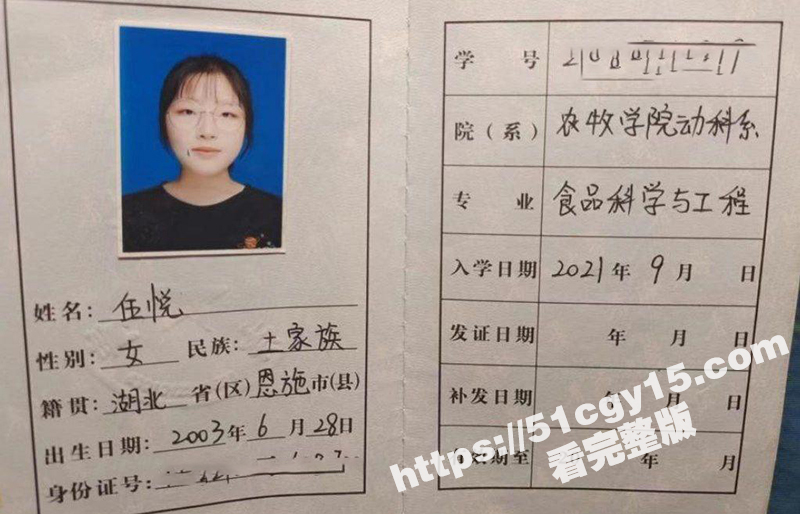 姓名: 伍悦
性别: 女 民族: 土家族
籍贯: 湖北 省(区) 恩施 市(县)
出生日期: 2003年 6 月 28日
身份证号:
学 号
院(系) 农牧学院动科系
专 业 食品科学与工程
入学日期 2021年 9 月 日
发证日期 年 月 日
补发日期 年 月 日
期至 年 月
https://51cgy15.com
看完整版